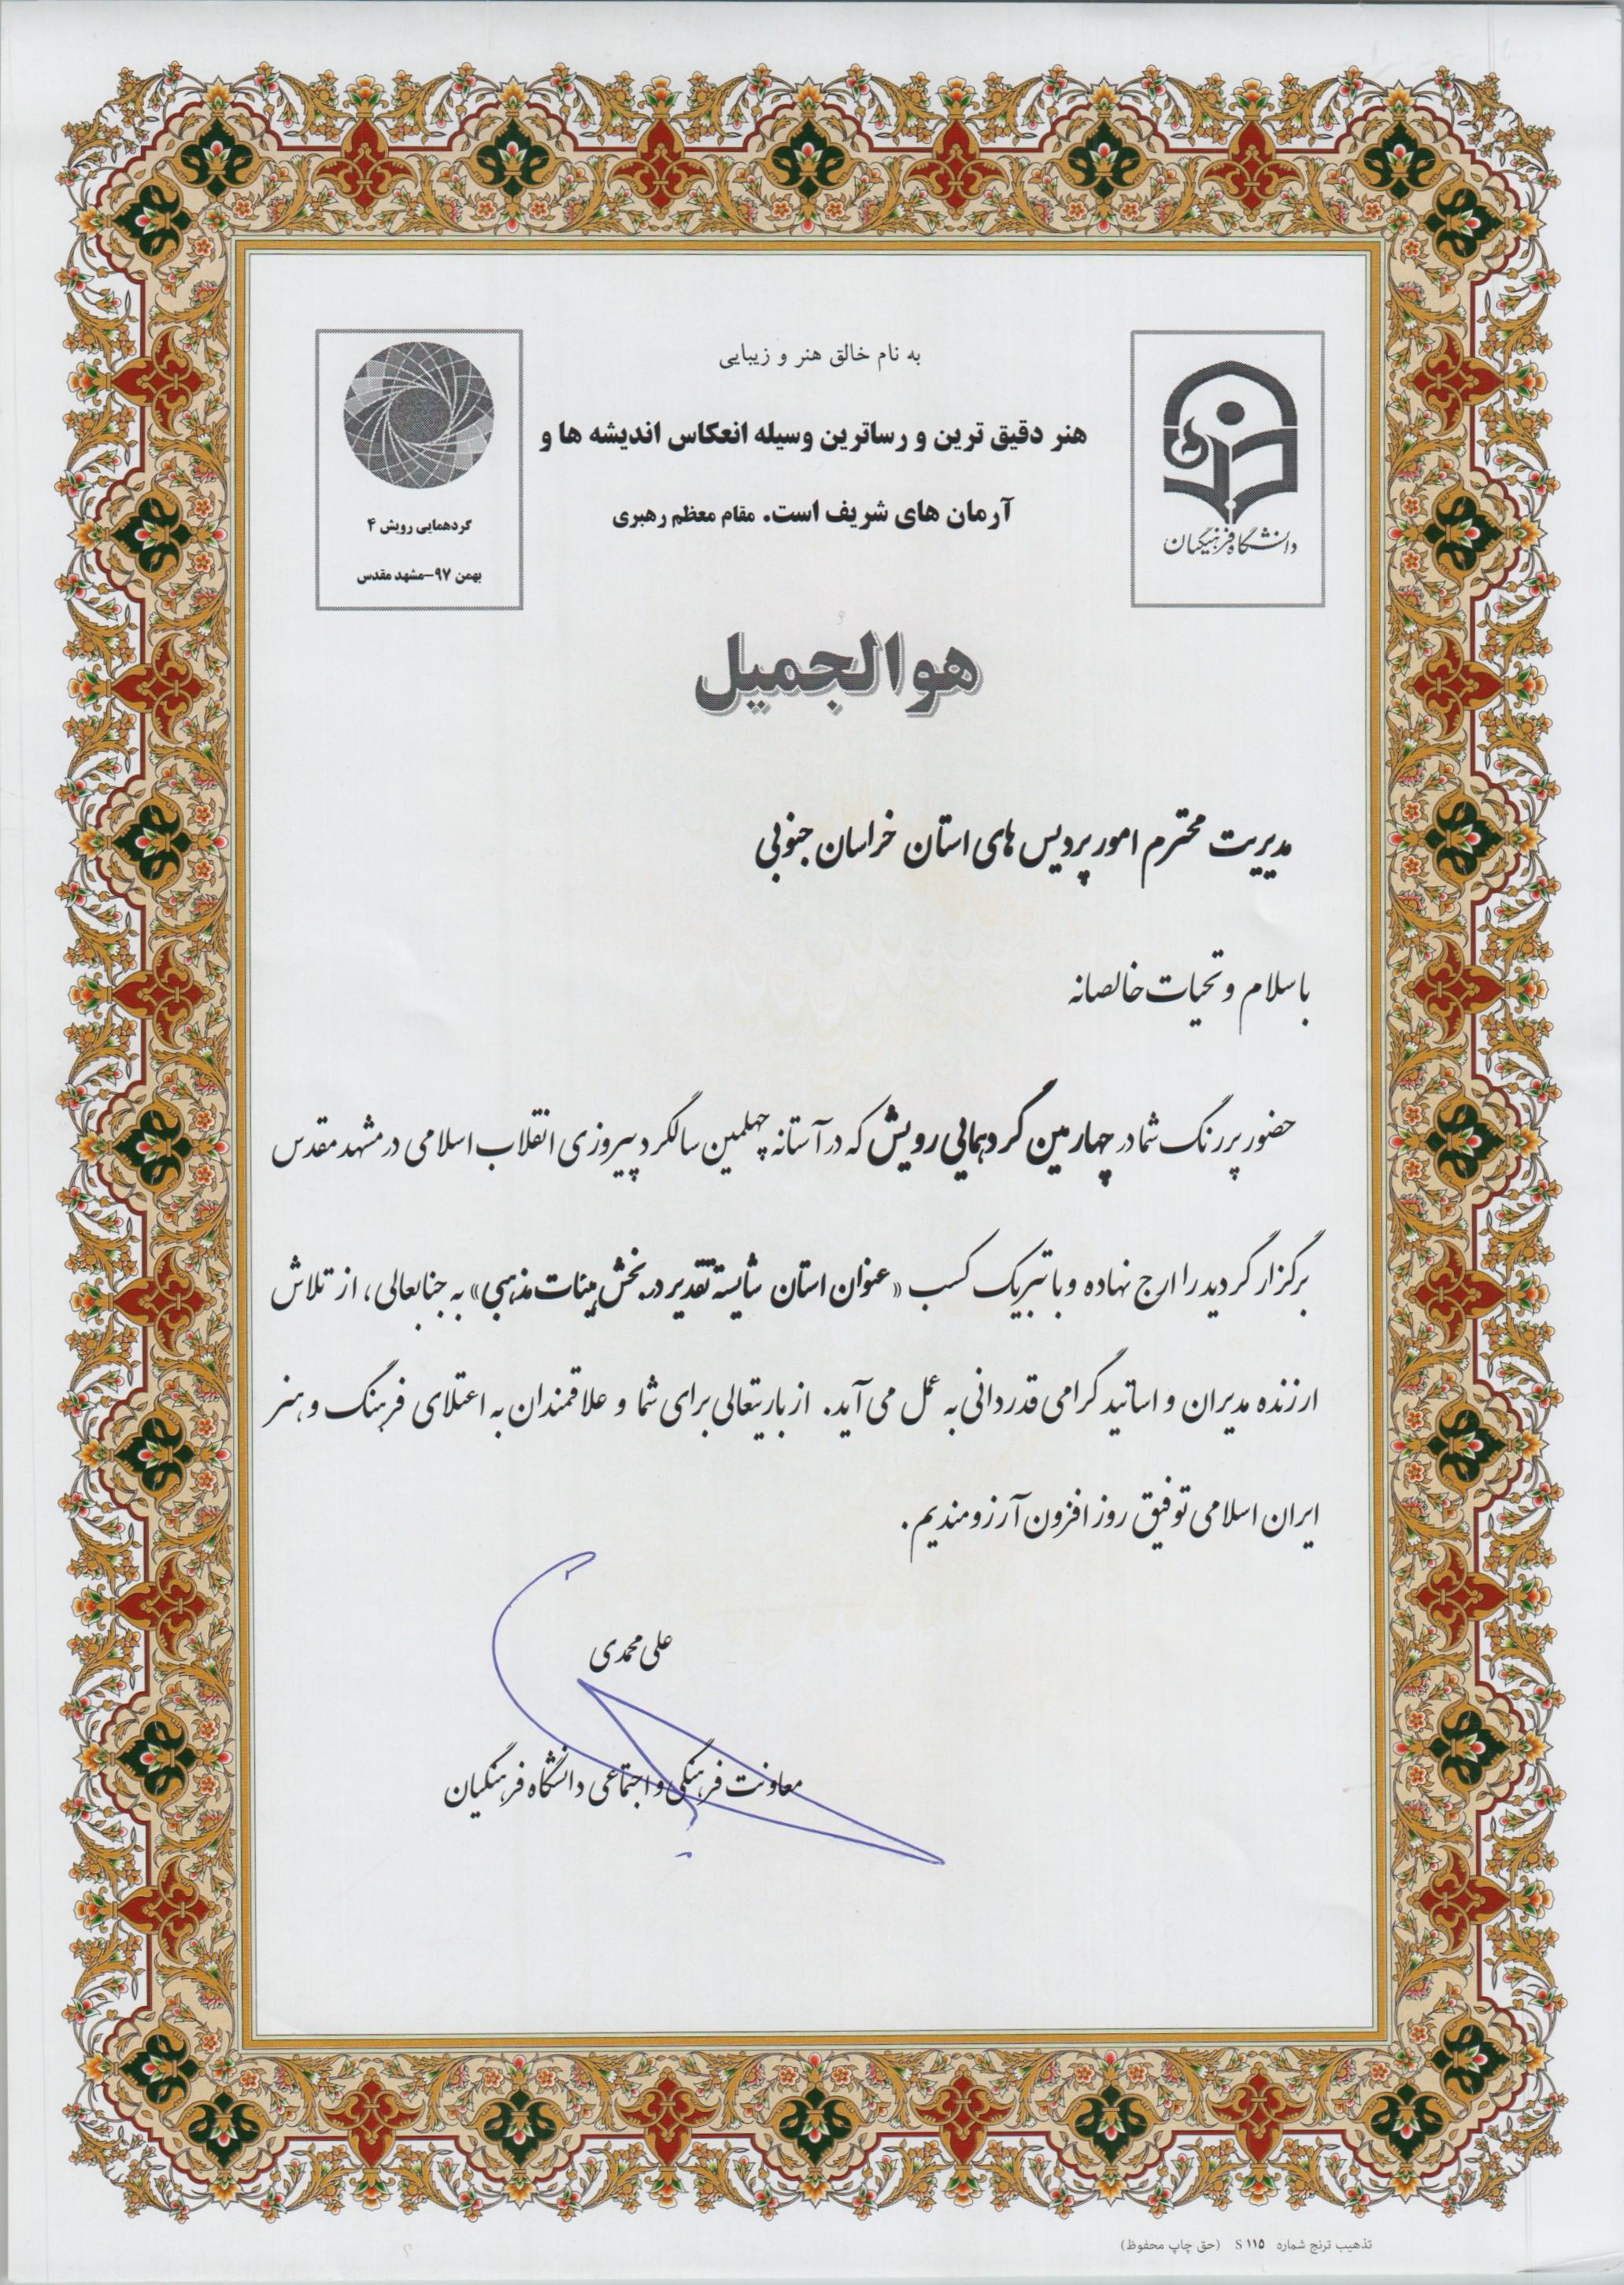 به نام خالق هنر و زیبایی
هنر دقیق ترین و رساترین وسیله انعکاس اندیشه ها و
آرمان های شریف است. مقام معظم رهبری
دانشگاه فرهنگیان
گردهمایی رویش ۴
بهمن ۹۷-مشهد مقدس
هوالجمیل
مدیریت محترم امور پردیس های استان خراسان جنوبی
با سلام و تحیات خالصانه
حضور پررنگ شما در چهارمین گردهمایی رویش که در آستانه چهلمین سالگرد پیروزی انقلاب اسلامی در مشهد مقدس
برگزار گردید را ارج نهاده و با تبریک کسب «عنوان استان شایسته تقدیر در بخش هیئات مذهبی» به جنابعالی، از تلاش
ارزنده مدیران و اساتید گرامی قدردانی به عمل می آید. از باریتعالی برای شما و علاقمندان به اعتلای فرهنگ و هنر
ایران اسلامی توفیق روز افزون آرزومندیم.
علی محمدی
معاونت فرهنگی و اجتماعی دانشگاه فرهنگیان
تذهیب ترنج شماره S ۱۱۵ (حق چاپ محفوظ)